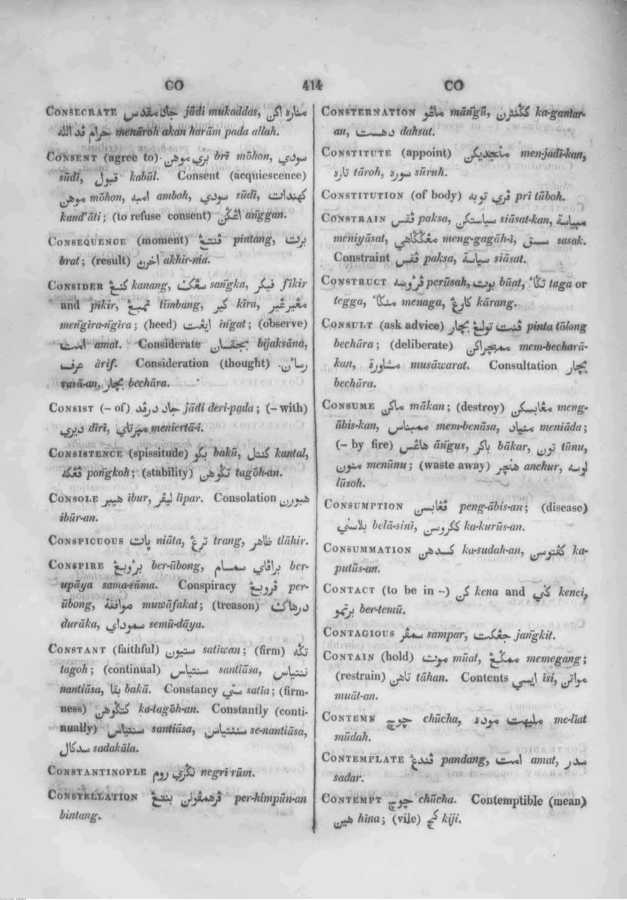 CO 414 CO
CONSECRATE جادي مقدس jādi mukaddas, مناره اكن
حرام فد الله menāroh akan harām pada allah.
CONSENT (agree to) بري موهن brī mōhon, سودي
sūdi, قبول kabūl. Consent (acquiescence)
موهن mōhon, امبه amboh, سودي sūdi, كهنداتي
kand'āti; (to refuse consent) اڠڬن anggan.
CONSEQUENCE (moment) فنتڠ pintang, برت
brat; (result) اخرن akhir-nia.
CONSIDER كنڠ kanang, سڠكت sangka, فيكر fikir
and pikir, تمبڠ timbang, كير kīra, مڠيرڠير
mengira-ngira; (heed) ايڠت ingat; (observe)
امت amat. Considerate بيجقسان bijaksāna,
عرف ārif. Consideration (thought) رساٴن
rasā-an, بچار bechāra.
CONSIST (– of) جادي درفد jādi deri-pada; (– with)
ديري diri, مڽرتاي meniertā-i.
CONSISTENCE (spissitude) بكو bakū, كنتل kantal,
فڠكه pongkoh; (stability) تڬوهن tagōh-an.
CONSOLE هيبر ibur, ليفر lipar. Consolation هيبورن
ibūr-an.
CONSPICUOUS ڽات niāta, ترڠ trang, ظاهر tlāhir.
CONSPIRE بربوڠ ber-ūbong, برافاي سمام ber-
upāya sama-sāma. Conspiracy فربوڠ per-
ūbong, موافقة muwāfakat; (treason) درهاك
durāka, سموداي semū-dāya.
CONSTANT (faithful) ستيون satiwan; (firm) تڬه
tagoh; (continual) سنتياس santiāsa, ننتياس
nantiāsa, بقا bakā. Constancy ستي satia; (firm-
ness) كتڬوهن ka-tagōh-an. Constantly (conti-
nually) سنتياس santiāsa, سسنتياس se-nantiāsa,
سدكال sadakāla.
CONSTANTINOPLE نڬري روم negri rūm.
CONSTELLATION فرهمفونن بنتڠ per-himpūn-an
bintang.
CONSTERNATION ماڠو māngū, كڬنترن ka-gantar-
an, دهست dahsat.
CONSTITUTE (appoint) منجديكن men-jadi-kan,
تاره tāroh, سوره sūrah.
CONSTITUTION (of body) فري توبه pri tūboh.
CONSTRAIN فقس paksa, سياستكن siāsat-kan, مڽياسة
meniyāsat, مڠڬاڬهي meng-gagāh-i, سسق sasak.
Constraint فقس paksa, سياسة siāsat.
CONSTRUCT فروسه perūsah, بوت būat, تڬا taga or
tegga, منڬا menaga, كارڠ kārang.
CONSULT (ask advice) فنت تولڠ بچار pinta tōlong
bechūra; (deliberate) ممبچراكن mem-becharā-
kan, مشاورة musāwarat. Consultation بچار
bechūra.
CONSUME ماكن mākan; (destroy) مڠابيسكن meng-
ābis-kan, ممبناس mem-benāsa, منياد meniāda;
(– by fire) هاڠس āngus, باكر bākar, تون tūnu,
منون menūnu; (waste away) هنچر anchur, لوسه
lūsoh.
CONSUMPTION فڠابسن peng-ābis-an; (disease)
بلاسني belā-sini, ككروسن ka-kurūs-an.
CONSUMMATION كسدهن ka-sudah-an, كفتوسن ka-
putūs-an.
CONTACT (to be in –) كن kena and كنچي kenci,
برتمو ber-temū.
CONTAGIOUS سمفر sampar, جڠكت jangkit.
CONTAIN (hold) موت mūat, ممڬڠ memegang;
(restrain) تاهن tāhan. Contents ايسي isi, مواتن
muāt-an.
CONTEMN چوچ chūcha, مليهت موده me-liat
mūdah.
CONTEMPLATE فندڠ pandang, امت amat, سدر
sadar.
CONTEMPT چوچ chūcha. Contemptible (mean)
هين hina; (vile) كجي kiji.